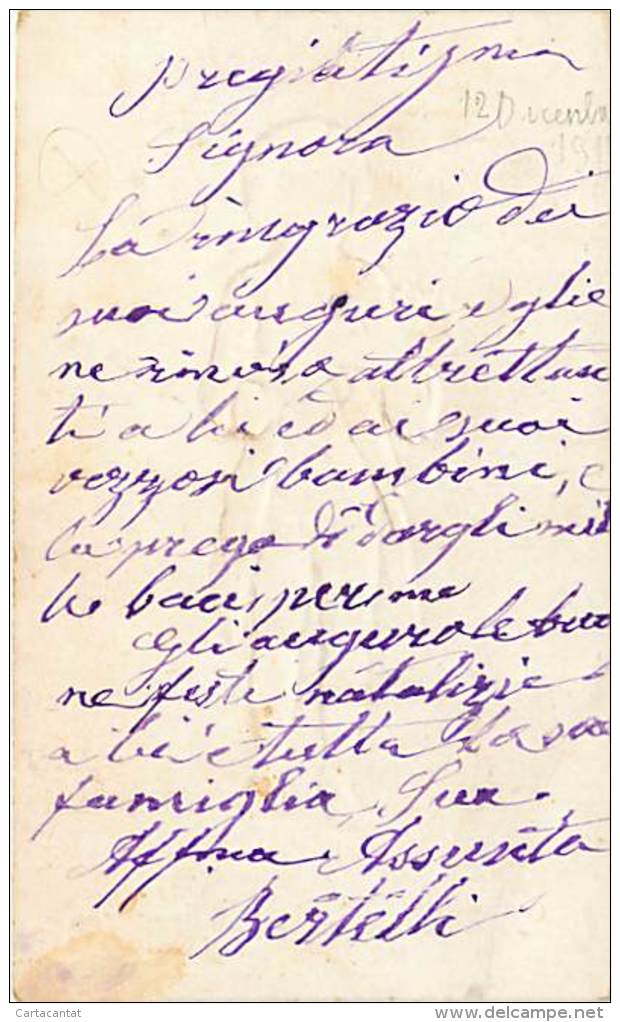 Pregiatisma
12 Dicemb
191
Signora
La ringrazio dei
suoi auguri e glie
ne rinvio altrettan
ti a lei ed ai suoi
vezzosi bambini, e
la prego di dargli mil
le baci per me
e gli auguro le buo
ne feste natalizie
a lei e tutta la sua
famiglia. Sua
Affma Assunta
Bertelli
Cartacantat
delcampe.net